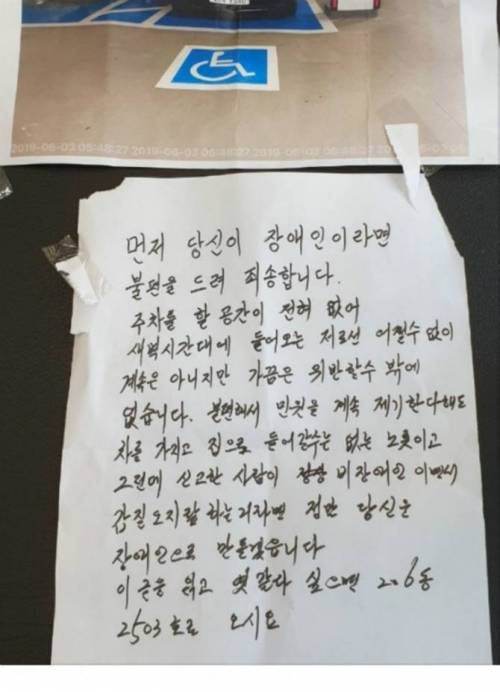 2019-06-03 05:48:27 2019-06-03 06:48:27 2019-06-03 05:48:27
먼저 당신이 장애인이라면
불편을 드려 죄송합니다.
주차를 할 공간이 전혀 없어
새벽시간대에 들어오는 저로선 어쩔수 없이
계속은 아니지만 가끔은 위반할수 밖에
없습니다. 불편해서 민원을 계속 제기한다해도
차를 가지고 집으로 들어갈수는 없는 노릇이고
그런데 신고한 사람이 비장애인 이면서
갑질 오지랖 하는거라면 당신은
장애인으로 만들겠습니다
이 글을 읽고 엿같다 싶으면 206동
2503호로 오시요